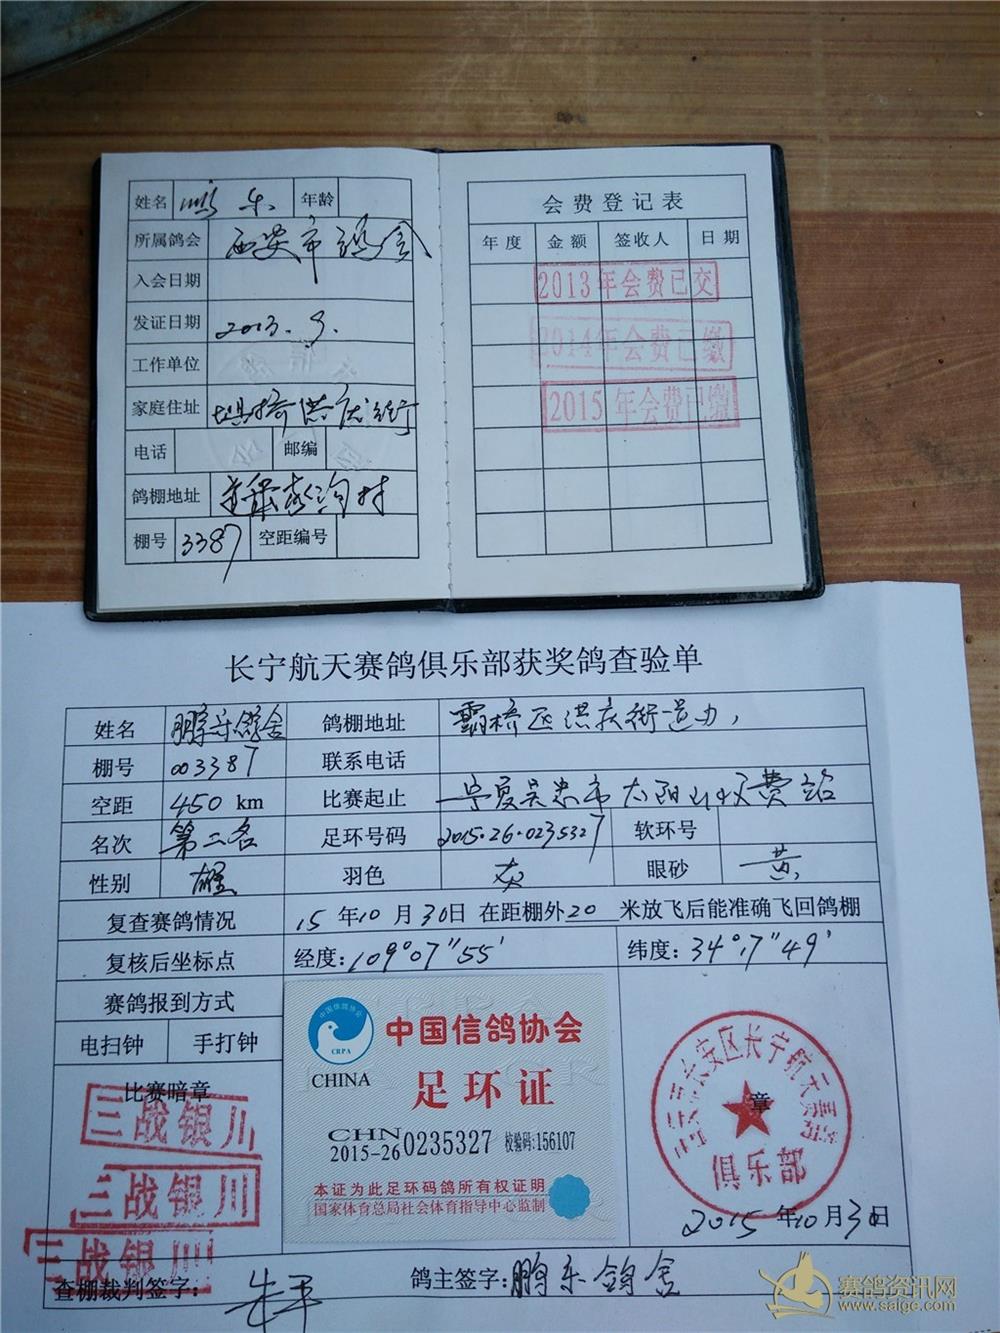 姓名 鹏乐 年龄
所属鸽会 西安市鸽会
入会日期
发证日期 2013.3.
工作单位
家庭住址 灞桥洪庆街
电话 邮编
鸽棚地址
棚号 3387 空距编号
会费登记表
年度 金额 签收人 日期
2013年会费已交
2014年会费已缴
2015年会费已缴
长宁航天赛鸽俱乐部获奖鸽查验单
姓名 鹏乐鸽舍 鸽棚地址 灞桥区洪庆街道办,
棚号 003387 联系电话
空距 450 km 比赛起止 宁夏吴忠市太阳山收费站
名次 第二名 足环号码 2015·26·0235327 软环号
性别 雄 羽色 灰 眼砂 黄
复查赛鸽情况 15年10月30日在距棚外20米放飞后能准确飞回鸽棚
复核后坐标点 经度:109°07"55' 纬度:34°17"49'
赛鸽报到方式
电扫钟 手打钟
比赛暗章
三战银川
三战银川
三战银川
中国信鸽协会
CRPA
CHINA
中国信鸽协会
足环证
CHN
2015-26 0235327 校验码:156107
本证为此足环码鸽所有权证明
国家体育总局社会体育指导中心监制
长安区长宁航天赛鸽
俱乐部
章
2015年10月30日
查棚裁判签字:
鸽主签字: 鹏乐鸽舍
赛鸽资讯网
www.saigc.com